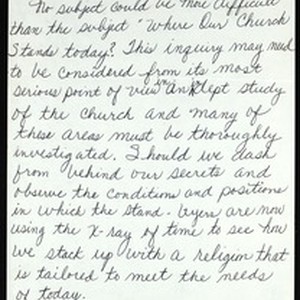 No subject could be more difficult
than the subject "Where Our Church
Stands today? This inquiry may need
to be considered from its most
serious point of view. An study
of the church and many of
these areas must be thoroughly
investigated. Should we dash
from behind our secrets and
observe the conditions and positions
in which the stand. are now
using the X-ray of time to see how
we stack up with a religion that
is tailored to meet the needs
of today.